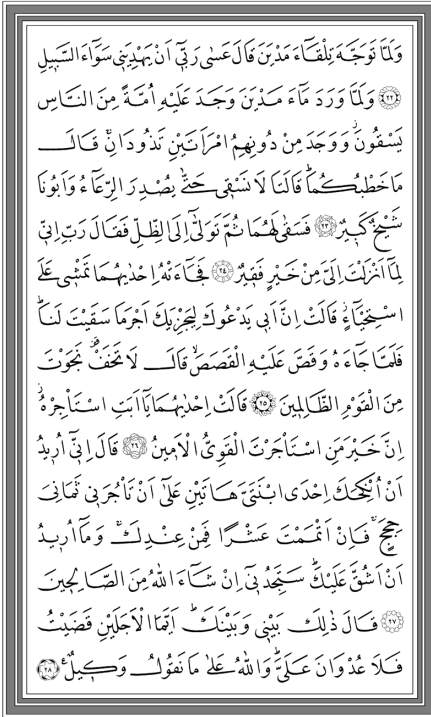 وَلَمَّا تَوَجَّهَ تِلْقَٓاءَ مَدْيَنَ قَالَ عَسٰى رَبّ۪ٓي اَنْ يَهْدِيَن۪ي سَوَٓاءَ السَّب۪يلِ
﴿٢٢﴾ وَلَمَّا وَرَدَ مَٓاءَ مَدْيَنَ وَجَدَ عَلَيْهِ اُمَّةً مِنَ النَّاسِ
يَسْقُونَۘ وَوَجَدَ مِنْ دُونِهِمُ امْرَاَتَيْنِ تَذُودَانِۚ قَالَ
مَا خَطْبُكُمَاۜ قَالَتَا لَا نَسْق۪ي حَتّٰى يُصْدِرَ الرِّعَٓاءُ وَاَبُونَا
شَيْخٌ كَب۪يرٌ ﴿٢٣﴾ فَسَقٰى لَهُمَا ثُمَّ تَوَلّٰٓى اِلَى الظِّلِّ فَقَالَ رَبِّ اِنّ۪ي
لِمَٓا اَنْزَلْتَ اِلَيَّ مِنْ خَيْرٍ فَق۪يرٌ ﴿٢٤﴾ فَجَٓاءَتْهُ اِحْدٰيهُمَا تَمْش۪ي عَلَى
اسْتِحْيَٓاءٍۘ قَالَتْ اِنَّ اَب۪ي يَدْعُوكَ لِيَجْزِيَكَ اَجْرَ مَا سَقَيْتَ لَنَاۜ
فَلَمَّا جَٓاءَهُ وَقَصَّ عَلَيْهِ الْقَصَصَۙ قَالَ لَا تَخَفْ۠ نَجَوْتَ
مِنَ الْقَوْمِ الظَّالِم۪ينَ ﴿٢٥﴾ قَالَتْ اِحْدٰيهُمَا يَٓا اَبَتِ اسْتَأْجِرْهُۘ
اِنَّ خَيْرَ مَنِ اسْتَأْجَرْتَ الْقَوِيُّ الْاَم۪ينُ ﴿٢٦﴾ قَالَ اِنّ۪ٓي اُر۪يدُ
اَنْ اُنْكِحَكَ اِحْدَى ابْنَتَيَّ هَاتَيْنِ عَلٰٓى اَنْ تَأْجُرَن۪ي ثَمَانِيَ
حِجَجٍۚ فَاِنْ اَتْمَمْتَ عَشْرًا فَمِنْ عِنْدِكَۚ وَمَٓا اُر۪يدُ
اَنْ اَشُقَّ عَلَيْكَۜ سَتَجِدُن۪ٓي اِنْ شَٓاءَ اللّٰهُ مِنَ الصَّالِح۪ينَ
﴿٢٧﴾ قَالَ ذٰلِكَ بَيْن۪ي وَبَيْنَكَۜ اَيَّمَا الْاَجَلَيْنِ قَضَيْتُ
فَلَا عُدْوَانَ عَلَيَّۜ وَاللّٰهُ عَلٰى مَا نَقُولُ وَك۪يلٌ۟ ﴿٢٨﴾